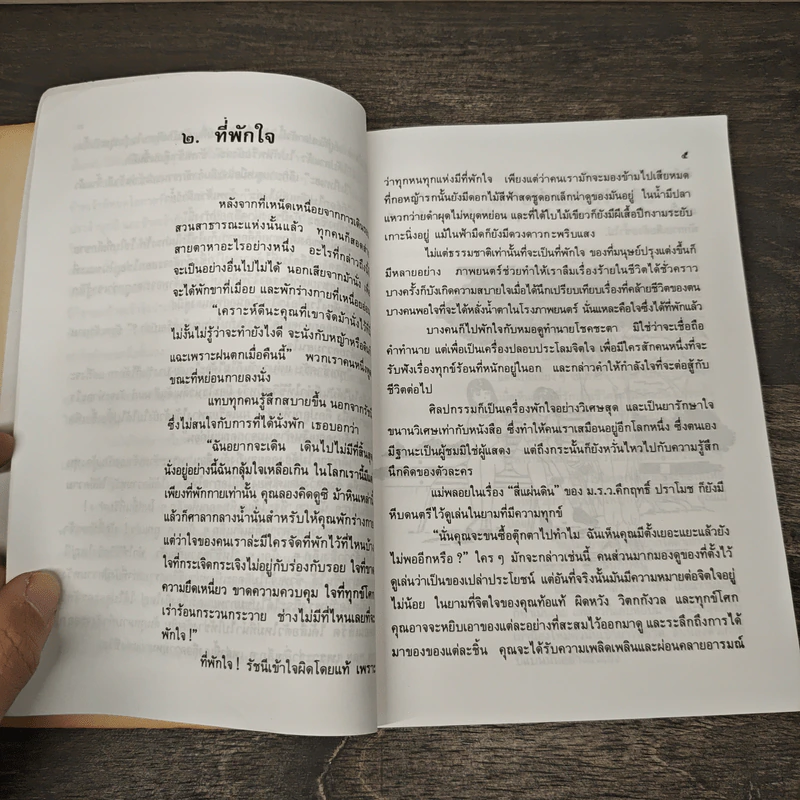 ๒. ที่พักใจ
หลังจากที่เหน็ดเหนื่อยจากการเดิน
สวนสาธารณะแห่งนั้นแล้ว ทุกคนก็สอดส่าย
สายตาหาอะไรอย่างหนึ่ง อะไรที่กล่าวถึงนี้
จะเป็นอย่างอื่นไปไม่ได้ นอกเสียจากม้านั่ง
จะได้พักขาที่เมื่อย และพักร่างกายที่เหนื่อย
“เคราะห์ดีนะคุณที่เขาจัดม้านั่งไว้ให้
ไม่งั้นไม่รู้ว่าจะทำยังไงดี จะนั่งกับหญ้าหรือดิน
แฉะเพราะฝนตกเมื่อคืนนี้” พวกเราคนหนึ่ง
ขณะที่หย่อนกายลงนั่ง
แทบทุกคนรู้สึกสบายขึ้น นอกจากรัชนี
ซึ่งไม่สนใจกับการที่ได้นั่งพัก เธอบอกว่า
“ฉันอยากจะเดิน เดินไปไม่มีที่สิ้นสุด
นั่งอยู่อย่างนี้ฉันกลุ้มใจเหลือเกิน ในโลกเรานี้มี
เพียงที่พักกายเท่านั้น คุณลองคิดดูซิ ม้าหินเหล่านี้
แล้วก็ศาลากลางน้ำนั่นสำหรับให้คุณพักร่างกาย
แต่ว่าใจของคนเราล่ะมีใครจัดที่พักไว้ที่ไหนบ้าง
ใจที่กระเจิดกระเจิงไม่อยู่กับร่องกับรอย ใจที่ขาด
ความยึดเหนี่ยว ขาดความควบคุม ใจที่ทุกข์โศก
เร่าร้อนกระวนกระวาย ช่างไม่มีที่ไหนเลยที่จะ
พักใจ !”
ที่พักใจ ! รัชนีเข้าใจผิดโดยแท้ เพราะ
๕
ว่าทุกหนทุกแห่งมีที่พักใจ เพียงแต่ว่าคนเรามักจะมองข้ามไปเสียหมด
ที่กอหญ้ารกนั้นยังมีดอกไม้สีฟ้าสดชูดอกเล็กน่าดูของมันอยู่ ในน้ำมีปลา
แหวกว่ายดำผุดไม่หยุดหย่อน และที่ใต้ใบไม้เขียวก็ยังมีผีเสื้อปีกงามระยับ
เกาะนิ่งอยู่ แม้ในฟ้ามืดก็ยังมีดวงดาวกะพริบแสง
ไม่แต่ธรรมชาติเท่านั้นที่จะเป็นที่พักใจ ของที่มนุษย์ปรุงแต่งขึ้นก็
มีหลายอย่าง ภาพยนตร์ช่วยทำให้เราลืมเรื่องร้ายในชีวิตได้ชั่วคราว
บางครั้งก็บังเกิดความสบายใจเมื่อได้นึกเปรียบเทียบเรื่องที่คล้ายชีวิตของตน
บางคนพอใจที่จะได้หลั่งน้ำตาในโรงภาพยนตร์ นั่นแหละคือใจซึ่งได้ที่พักแล้ว
บางคนก็ไปพักใจกับหมอดูทำนายโชคชะตา มิใช่ว่าจะเชื่อถือ
คำทำนาย แต่เพื่อเป็นเครื่องปลอบประโลมจิตใจ เพื่อมีใครสักคนหนึ่งที่จะ
รับฟังเรื่องทุกข์ร้อนที่หนักอยู่ในอก และกล่าวคำให้กำลังใจที่จะต่อสู้กับ
ชีวิตต่อไป
ศิลปกรรมก็เป็นเครื่องพักใจอย่างวิเศษสุด และเป็นยารักษาใจ
ขนานวิเศษเท่ากับหนังสือ ซึ่งทำให้คนเราเสมือนอยู่อีกโลกหนึ่ง ซึ่งตนเอง
มีฐานะเป็นผู้ชมมิใช่ผู้แสดง แต่ถึงกระนั้นก็ยังหวั่นไหวไปกับความรู้สึก
นึกคิดของตัวละคร
แม่พลอยในเรื่อง “สี่แผ่นดิน” ของ ม.ร.ว.คึกฤทธิ์ ปราโมช ก็ยังมี
หีบดนตรีไว้ดูเล่นในยามที่มีความทุกข์
“นั่นคุณจะขนซื้อตุ๊กตาไปทำไม ฉันเห็นคุณมีตั้งเยอะแยะแล้วยัง
ไม่พออีกหรือ ?” ใคร ๆ มักจะกล่าวเช่นนี้ คนส่วนมากมองดูของที่ตั้งไว้
ดูเล่นว่าเป็นของเปล่าประโยชน์ แต่อันที่จริงนั้นมันมีความหมายต่อจิตใจอยู่
ไม่น้อย ในยามที่จิตใจของคุณท้อแท้ ผิดหวัง วิตกกังวล และทุกข์โศก
คุณอาจจะหยิบเอาของแต่ละอย่างที่สะสมไว้ออกมาดู และระลึกถึงการได้
มาของของแต่ละชิ้น คุณจะได้รับความเพลิดเพลินและผ่อนคลายอารมณ์